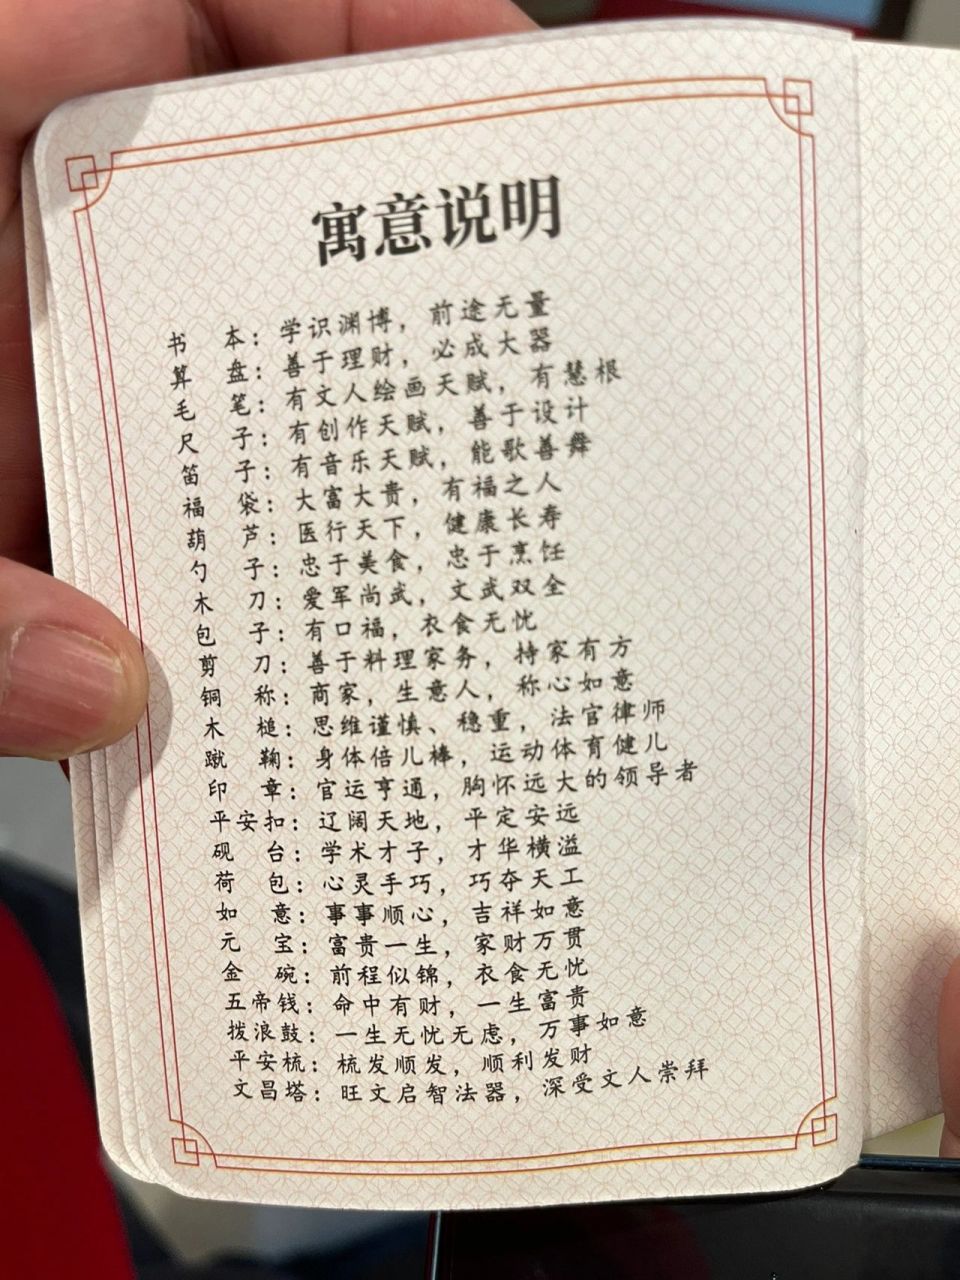 寓意说明
书本：学识渊博，前途无量
算盘：善于理财，必成大器
毛笔：有文人绘画天赋，有慧根
尺子：有创作天赋，善于设计
笛子：有音乐天赋，能歌善舞
福袋：大富大贵，有福之人
葫芦：医行天下，健康长寿
勺子：忠于美食，忠于烹饪
木刀：爱军尚武，文武双全
包子：有口福，衣食无忧
剪刀：善于料理家务，持家有方
铜称：商家，生意人，称心如意
木槌：思维谨慎、稳重，法官律师
蹴鞠：身体倍儿棒，运动体育健儿
印章：官运亨通，胸怀远大的领导者
平安扣：辽阔天地，平定安远
砚台：学术才子，才华横溢
荷包：心灵手巧，巧夺天工
如意：事事顺心，吉祥如意
元宝：富贵一生，家财万贯
金碗：前程似锦，衣食无忧
五帝钱：命中有财，一生富贵
拨浪鼓：一生无忧无虑，万事如意
平安梳：梳发顺发，顺利发财
文昌塔：旺文启智法器，深受文人崇拜